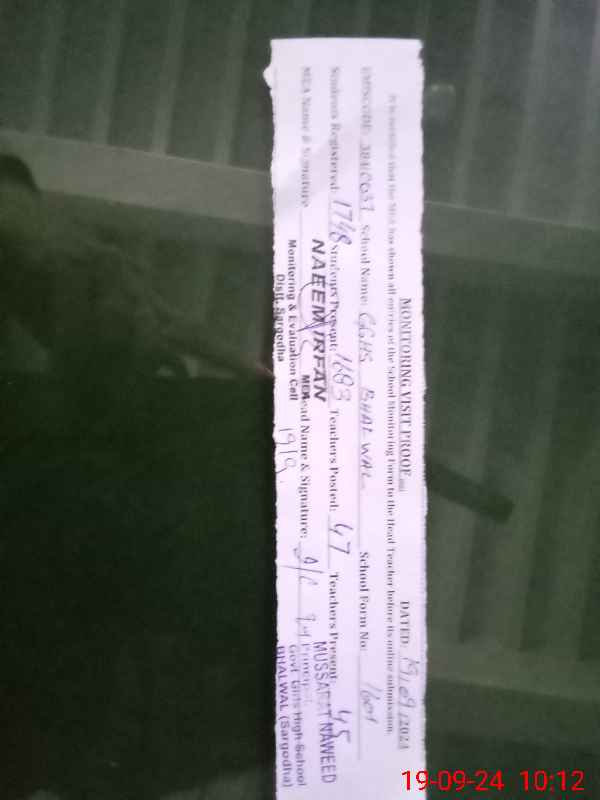 MONITORING VISIT PROOF DATED: 19/09/2024
It is certified that the MEA has shown all entries of the School Monitoring Form to the Head Teacher before its online submission.
EMISCODE: School Name: GGHS BHALWAL School Form No: 1601
Students Registered: 1748 Students Present: 1683 Teachers Posted: 47 Teachers Present 45
MEA Name & Signature Head Name & Signature:
NAEEM IRFAN
MEA
Monitoring & Evaluation Cell
Distt. Sargodha
19/9
MUSSARAT NAWEED
Principal
Govt. Girls High School
BHALWAL (Sargodha)
19-09-24 10:12